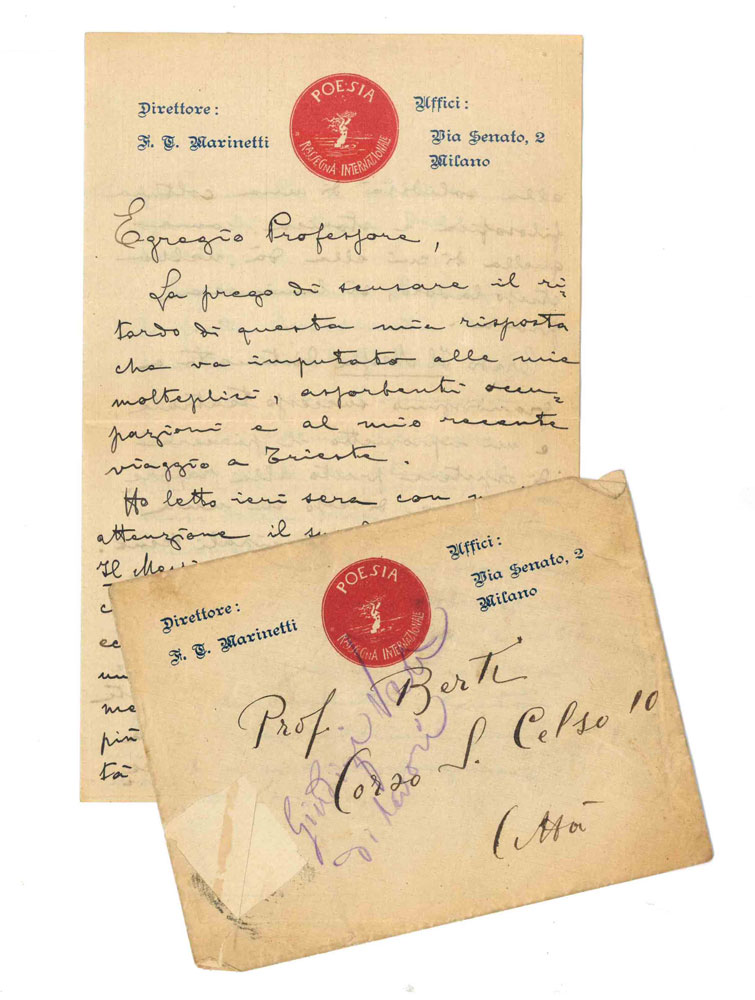 Direttore:
F. T. Marinetti
POESIA
RASSEGNA INTERNAZIONALE
Uffici:
Via Senato, 2
Milano
Egregio Professore,
La prego di scusare il ri-
tardo di questa mia risposta
che va imputato alle mie
molteplici, assorbenti occu-
pazioni e al mio recente
viaggio a Trieste.
Ho letto ieri sera con
attenzione il
Il
un
me
più
tà
Direttore:
F. T. Marinetti
POESIA
RASSEGNA INTERNAZIONALE
Uffici:
Via Senato, 2
Milano
Prof. Berti
Corso S. Celso 10
Città
Giudizi
di lavori